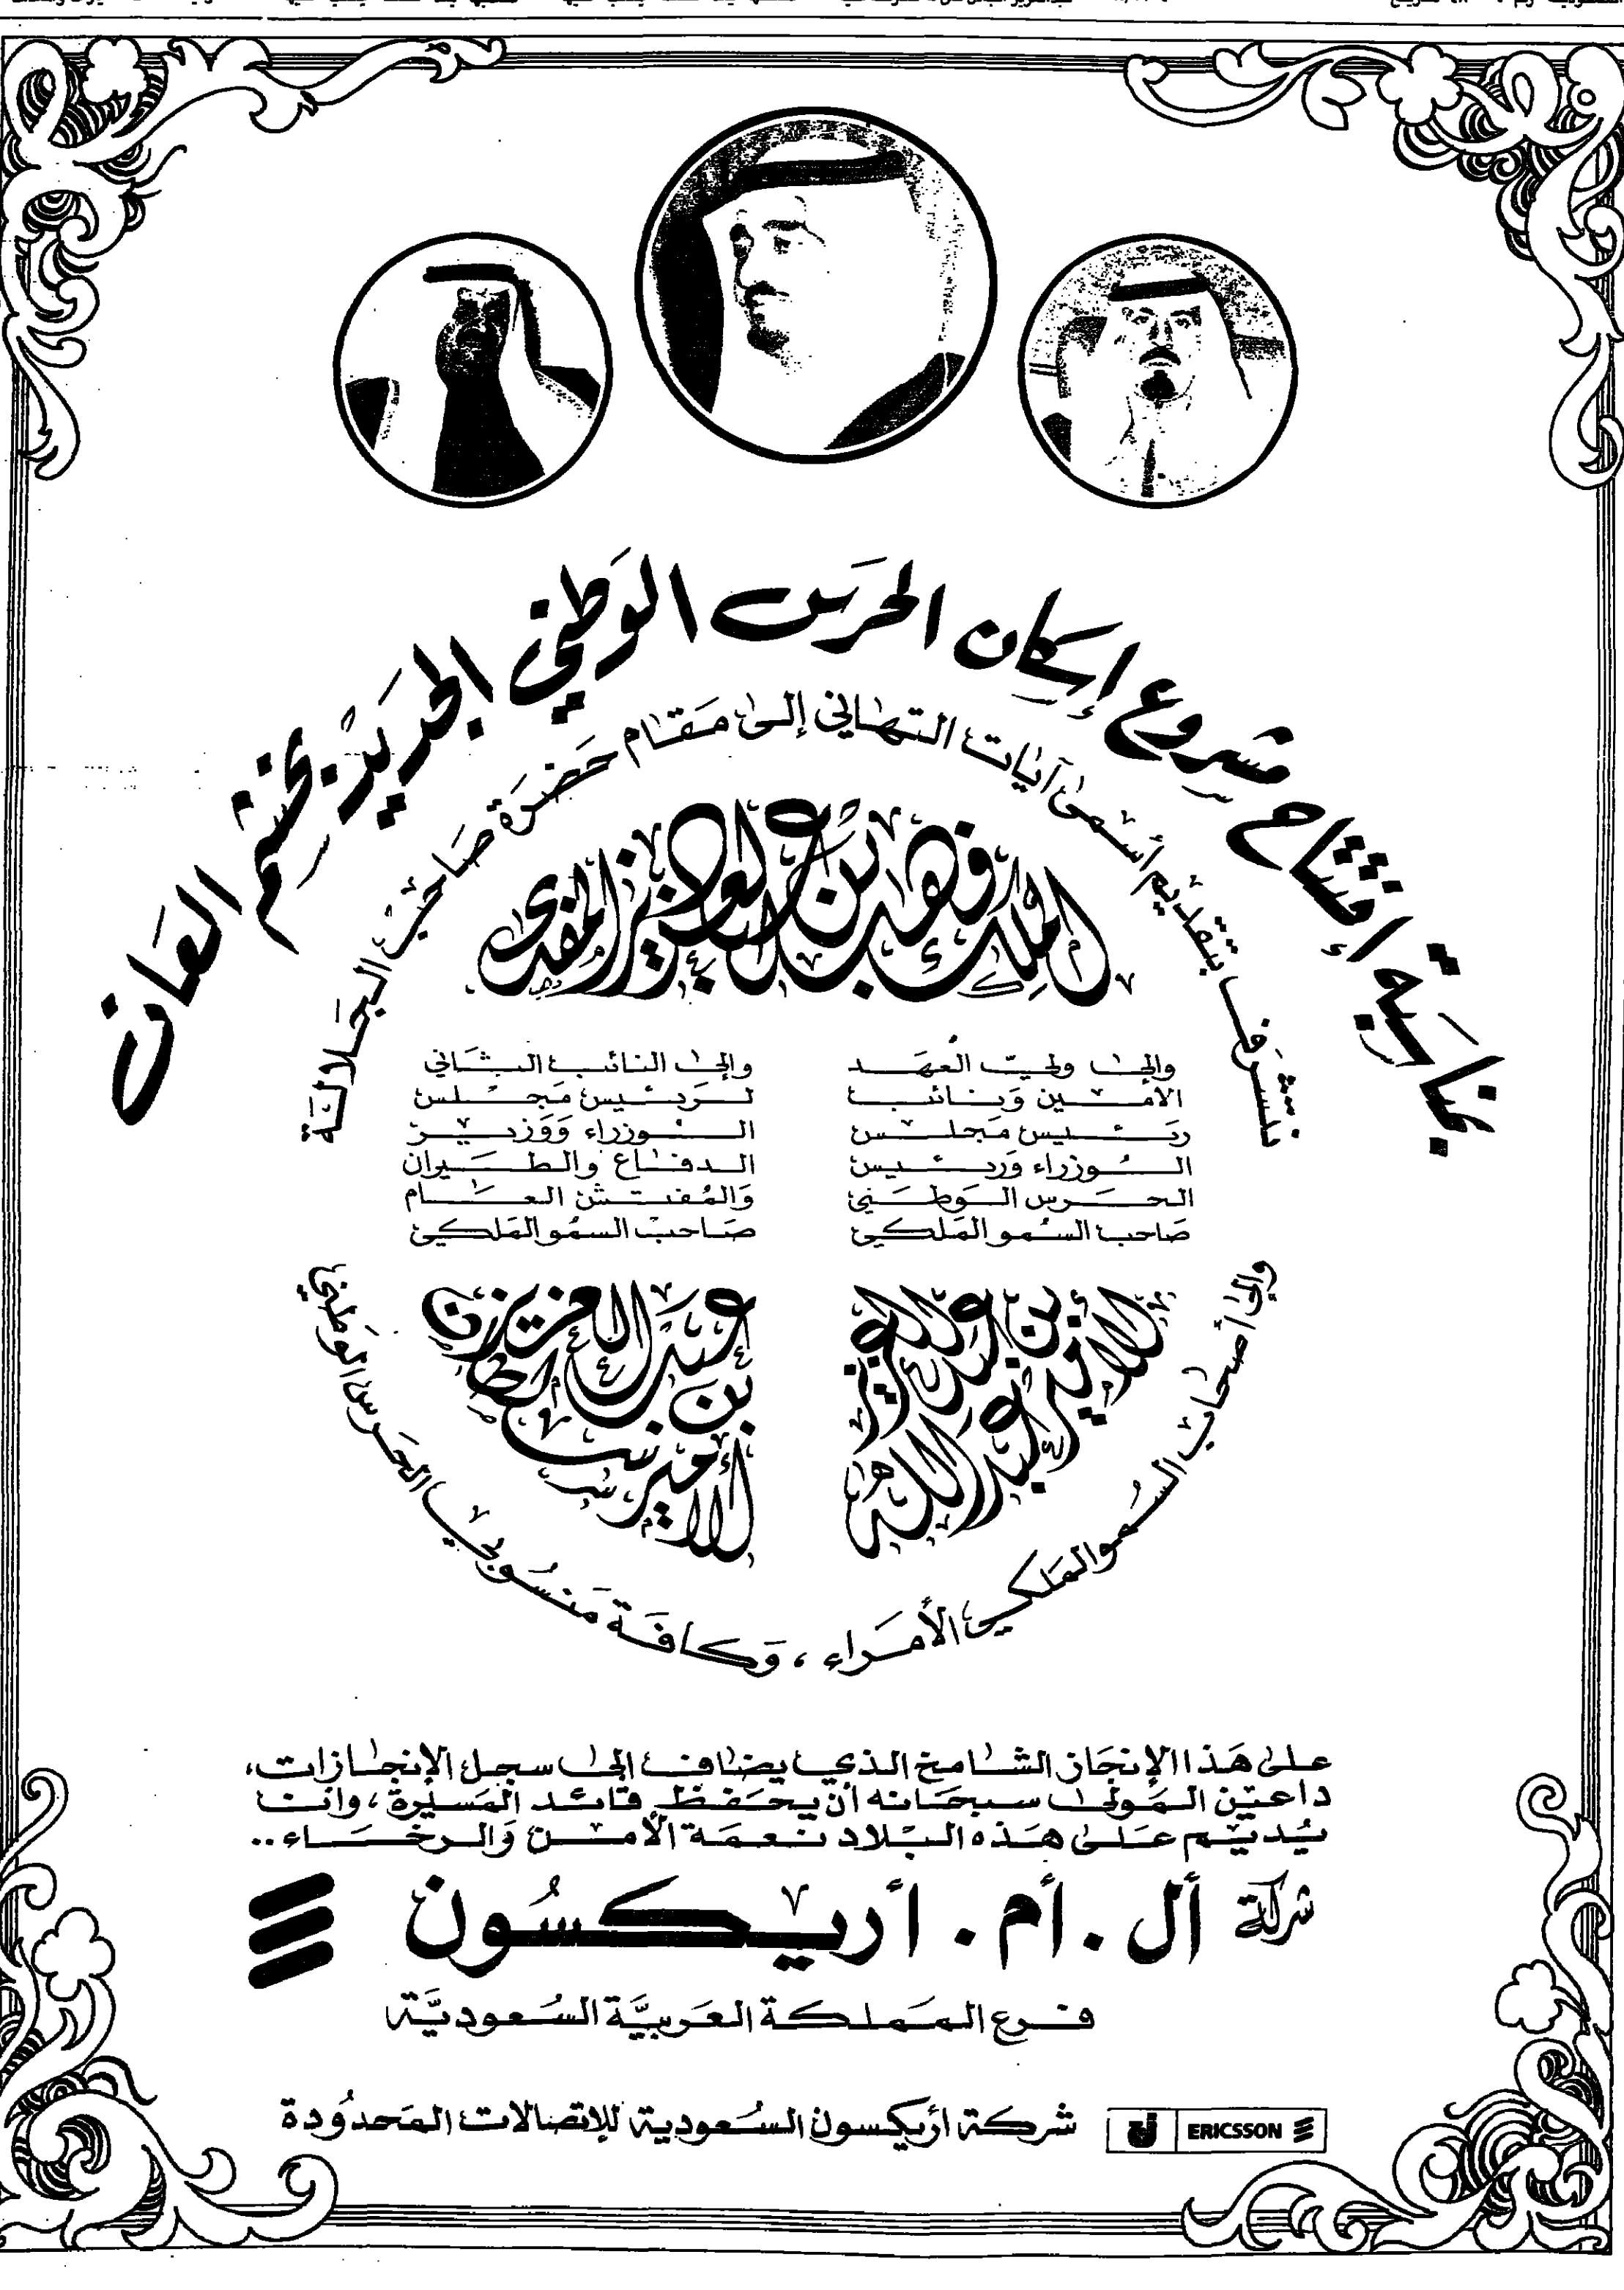 بمناسبة افتتاح مشروع إسكان الحرس الوطني الجديد بخشم العان
نتشرف بتقديم أسمى آيات التهاني إلى مقام حضرة صاحب الجلالة
الملك فهد بن عبد العزيز المفدى
وإلى ولي العهد
الأمين ونائب
رئيس مجلس
الوزراء ورئيس
الحرس الوطني
صاحب السمو الملكي
الأمير عبد الله بن عبد العزيز
وإلى النائب الثاني
لرئيس مجلس
الوزراء ووزير
الدفاع والطيران
والمفتش العام
صاحب السمو الملكي
الأمير سلطان بن عبد العزيز
وإلى أصحاب السمو الملكي الأمراء، وكافة منسوبي الحرس الوطني
على هذا الإنجاز الشامخ الذي يضاف إلى سجل الإنجازات،
داعين المولى سبحانه أن يحفظ قائد المسيرة، وان
يديم على هذه البلاد نعمة الأمن والرخاء..
شركة أل. أم. أريكسون
فرع المملكة العربية السعودية
ERICSSON شركة اريكسون السعودية للإتصالات المحدودة